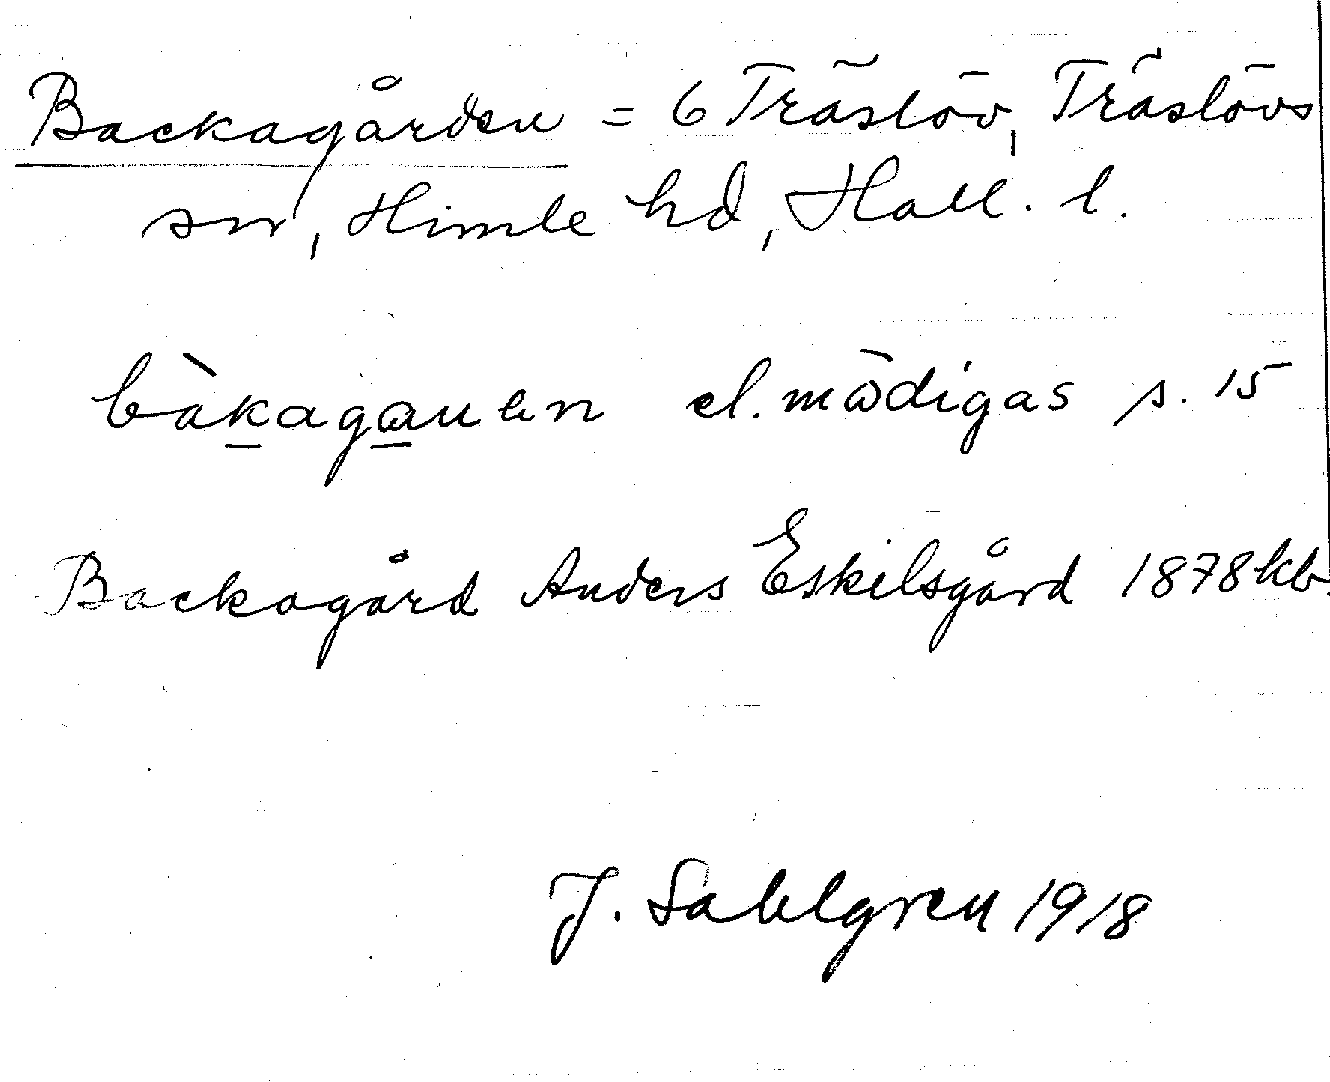 Backagården = 6 Träslöv, Träslövs
sn, Himle hd, Hall. l.
bàkagauen el. mödigas s. 15
Backagård Anders Eskilsgård 1878 kb.
J. Sahlgren 1918